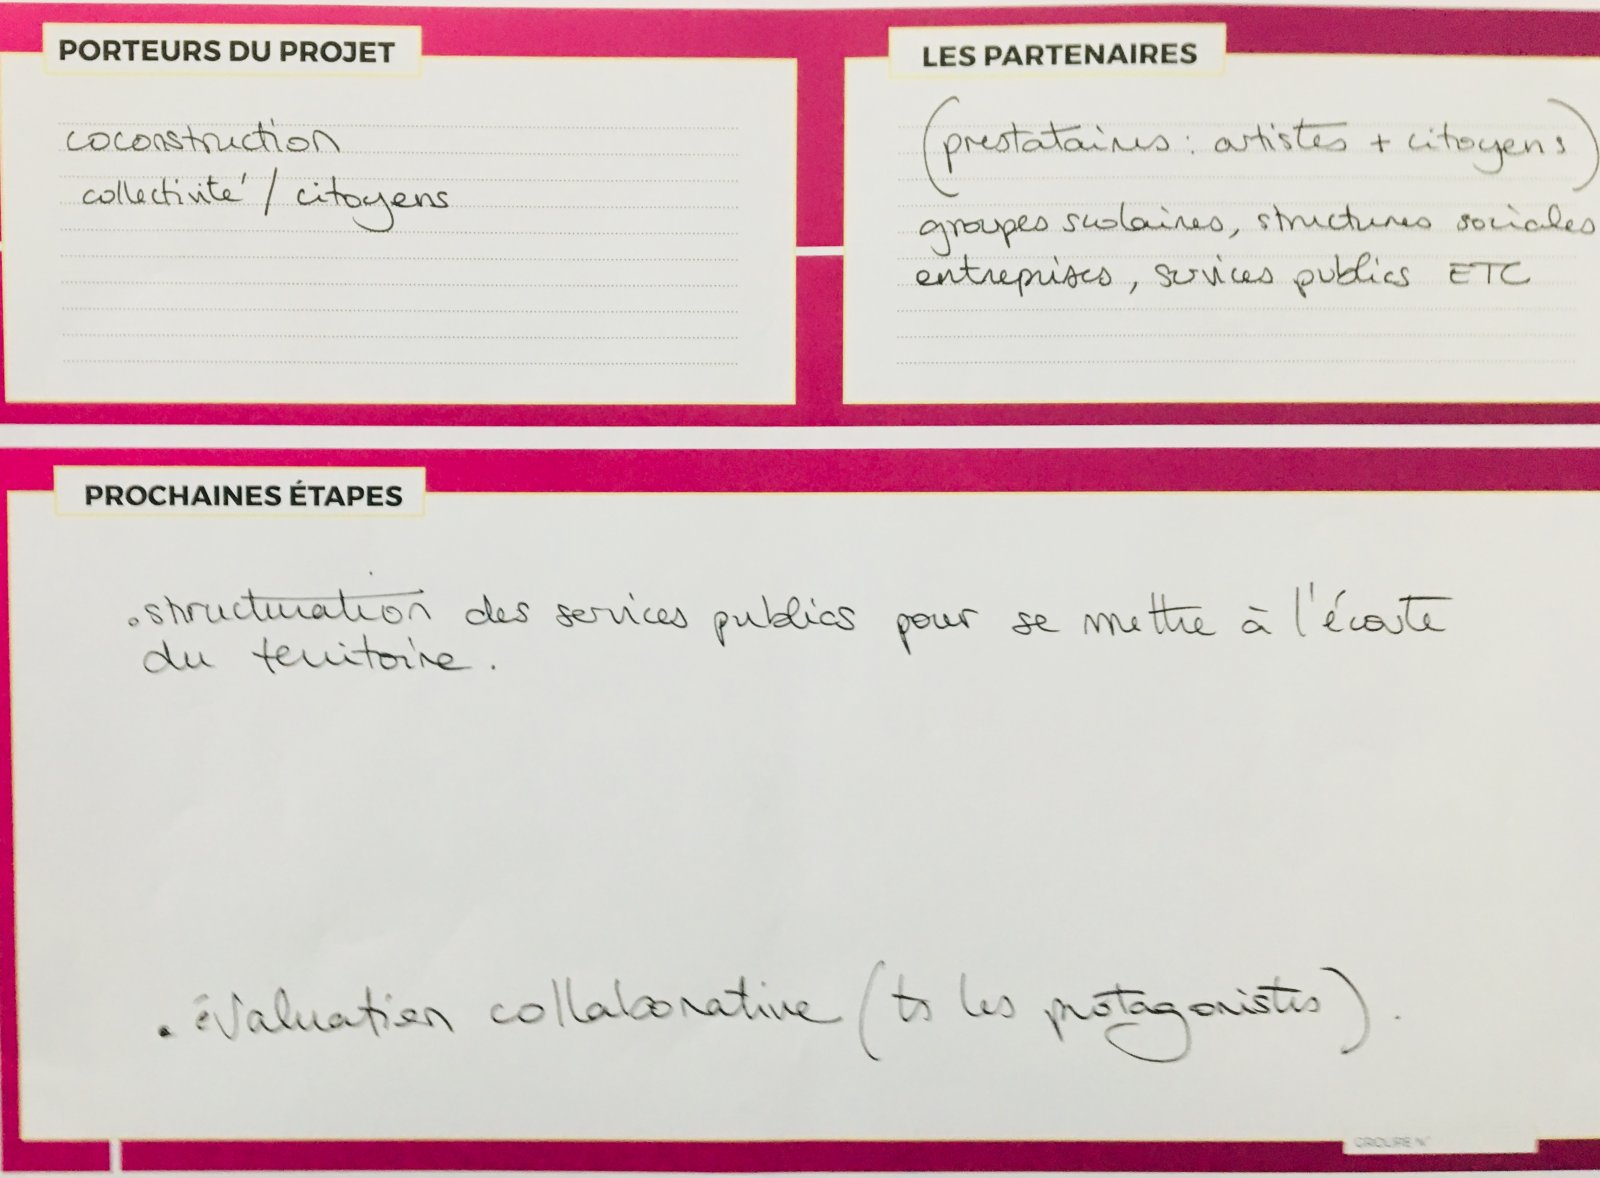 PORTEURS DU PROJET
coconstruction
collectivité / citoyens
LES PARTENAIRES
(prestataires : artistes + citoyens)
groupes scolaires, structures sociales
entreprises, services publics ETC
PROCHAINES ÉTAPES
. structuration des services publics pour se mettre à l'écoute
du territoire.
. évaluation collaborative (ts les protagonistes).
GROUPE N°